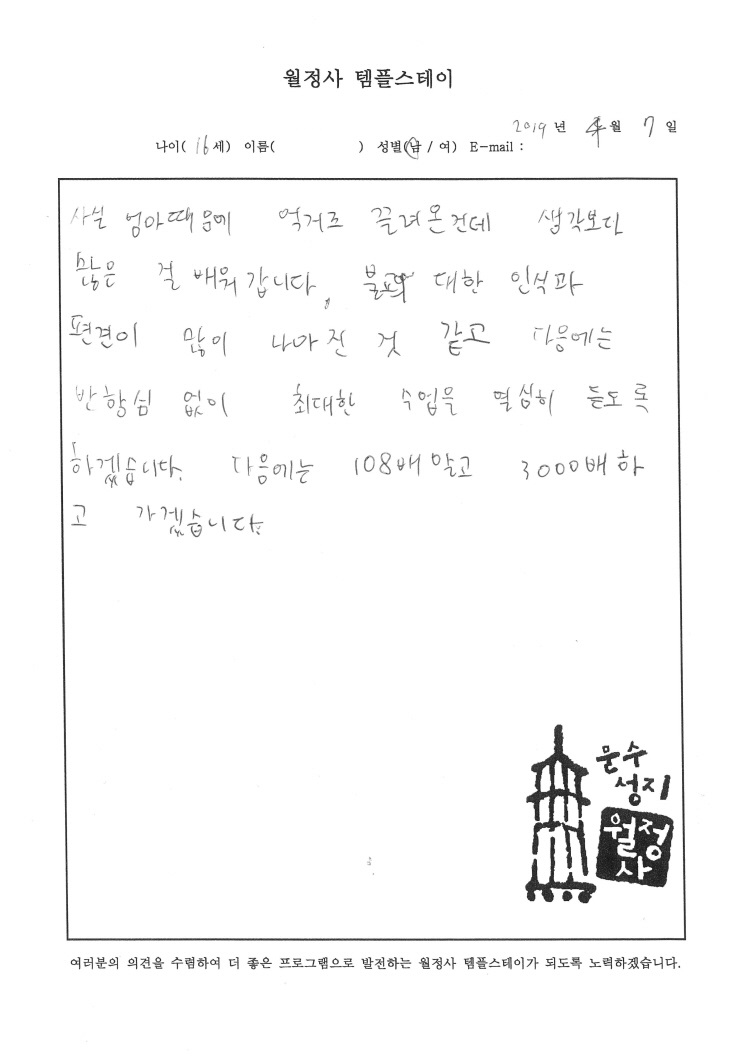 월정사 템플스테이
2019 년 4 월 7 일
나이( 16 세) 이름( ) 성별(남 / 여) E-mail :
사실 엄마때문에 억거즈 끌려온건데 생각보다
많은 걸 배워 갑니다. 불교의 대한 인식과
편견이 많이 나아진 것 같고 다음에는
반항심 없이 최대한 수업을 열심히 듣도록
하겠습니다. 다음에는 108배 말고 3000배 하
고 가겠습니다.
문수
성지
월정
사
여러분의 의견을 수렴하여 더 좋은 프로그램으로 발전하는 월정사 템플스테이가 되도록 노력하겠습니다.